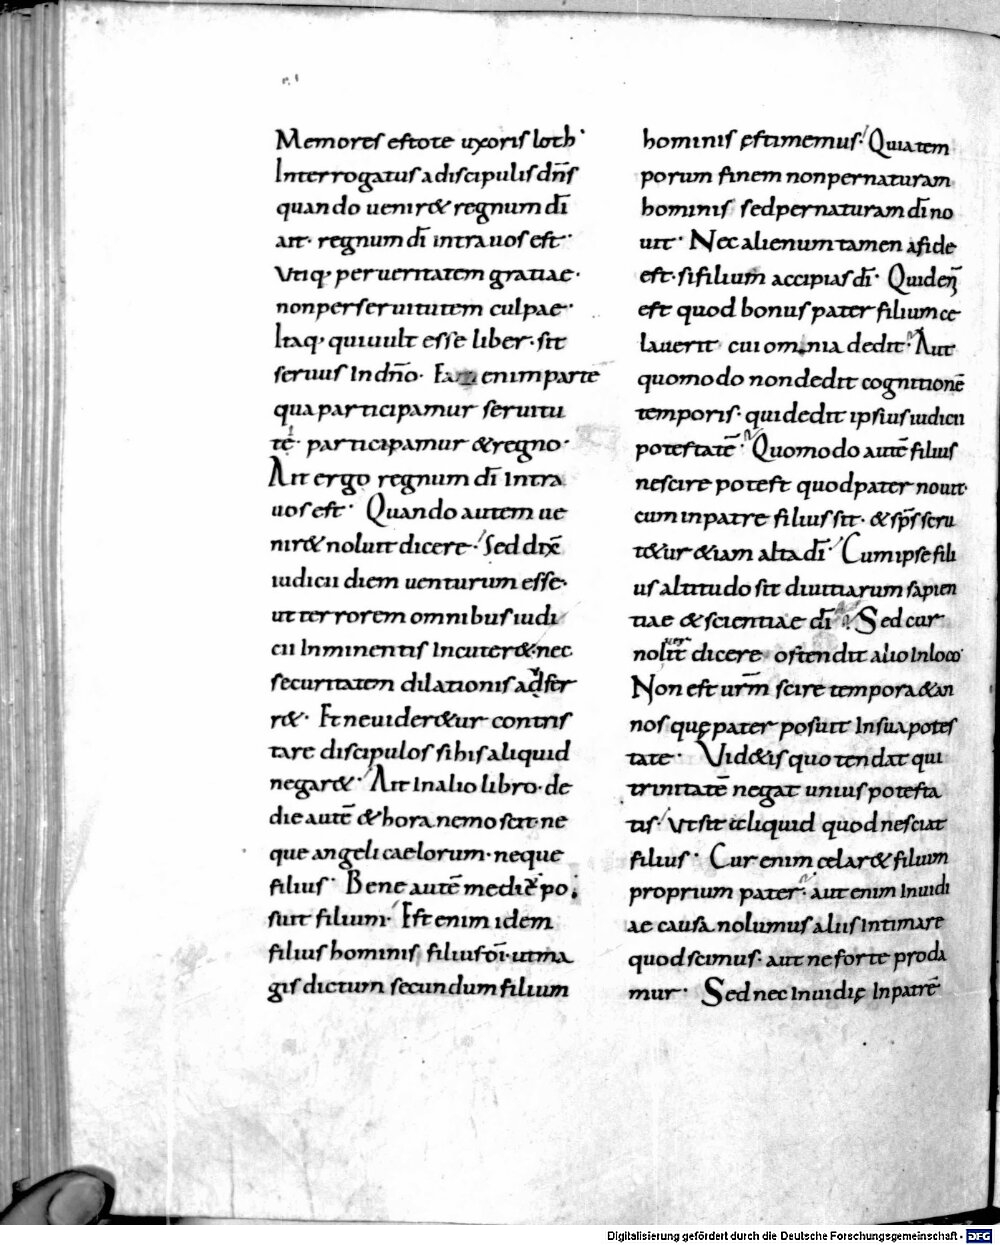 Memores estote uxoris loth·
Interrogatus a discipulis dn̄s
quando uenir& regnum dī
ait· regnum dī intra uos est·
Vtiq· per ueritatem gratiae·
non per seruitutem culpae·
Itaq· qui uult esse liber· sit
seruus In dn̄o· enim partē
qua participamur seruitu
tē· participamur & regno·
Ait ergo regnum dī Intra
uos est· Quando autem ue
nir& noluit dicere· Sed dix̄
iudicii diem uenturum esse·
ut terrorem omnibus iudi
cii Inminentis Incuter& nec
securitatem dilationis adfer
r&· Et ne uider&ur contris
tare discipulos si his aliquid
negar&· Ait In alio libro· de
die autē & hora nemo scit· ne
que angeli caelorum· neque
filius· Bene autē po
suit filium· Est enim idem
filius hominis filius dī· ut ma
gis dictum secundum filium
hominis ęstimemus· Quia tem
porum finem non per naturam
hominis sed per naturam dī no
uit· Nec alienum tamen a fide
est· si filium accipias dī· Quid en̄
est quod bonus pater filium ce
lauerit cui omnia dedit· Aut
quomodo non dedit cognitionē
temporis· qui dedit ipsius iudicii
potestatē· Quomodo autē filius
nescire potest quod pater nouit·
cum in patre filius sit· & sp̄s scru
t&ur &iam alta dī· Cum ipse fili
us altitudo sit diuitiarum sapien
tiae & scientiae dī· Sed cur
dicere ostendit alio In loco·
Non est ur̄m scire tempora & an
nos quę pater posuit In sua potes
tate· Vid&is quo tendat qui
trinitatē negat unius potesta
tis· Vt sit aliquid quod nesciat
filius· Cur enim celar& filium
proprium pater· aut enim Inuidi
ae causa nolumus aliis Intimare
quod scimus· aut ne forte proda
mur· Sed nec Inuidię In patrē
Digitalisierung gefördert durch die Deutsche Forschungsgemeinschaft - DFG